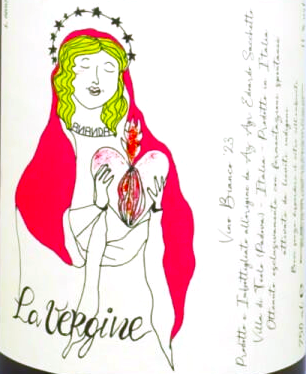 ANANDA
La Vergine
Vino Bianco 23
Prodotto e Imbottigliato all'origine da Az. Agr. Edoardo Sacchetto
Villa di Teolo (Padova) - Italia - Prodotto in Italia
Ottenuto esclusivamente con fermentazione spontanea
attivata da lieviti indigeni